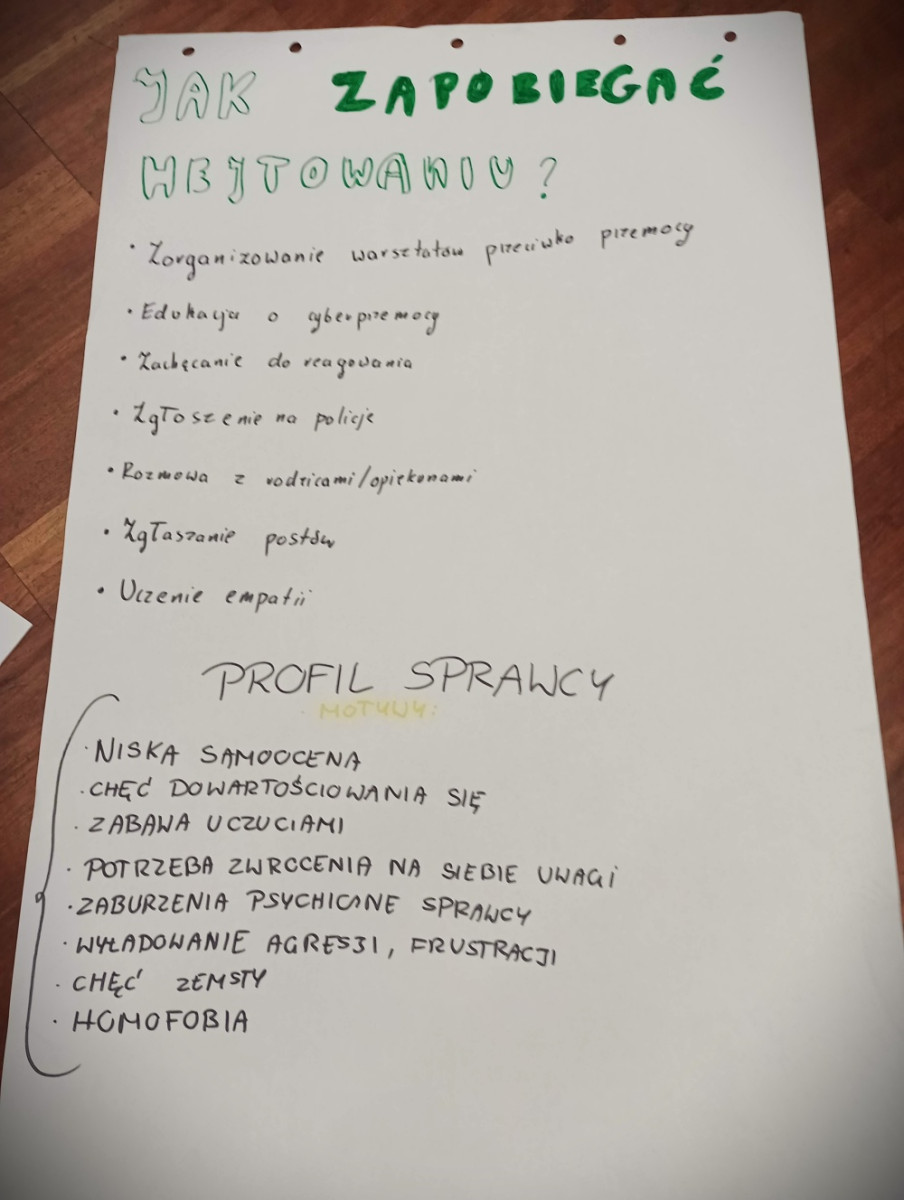 JAK ZAPOBIEGAĆ
HEJTOWANIU?
• Zorganizowanie warsztatów przeciwko przemocy
• Edukacja o cyberprzemocy
• Zachęcanie do reagowania
• Zgłoszenie na policje
• Rozmowa z rodzicami/opiekonami
• Zgłaszanie postów
• Uczenie empatii
PROFIL SPRAWCY
MOTYWY:
• NISKA SAMOOCENA
• CHĘĆ DOWARTOŚCIOWANIA SIĘ
• ZABAWA UCZUCIAMI
• POTRZEBA ZWROCENIA NA SIEBIE UWAGI
• ZABURZENIA PSYCHICZNE SPRAWCY
• WYŁADOWANIE AGRESJI, FRUSTRACJI
• CHĘĆ ZEMSTY
• HOMOFOBIA